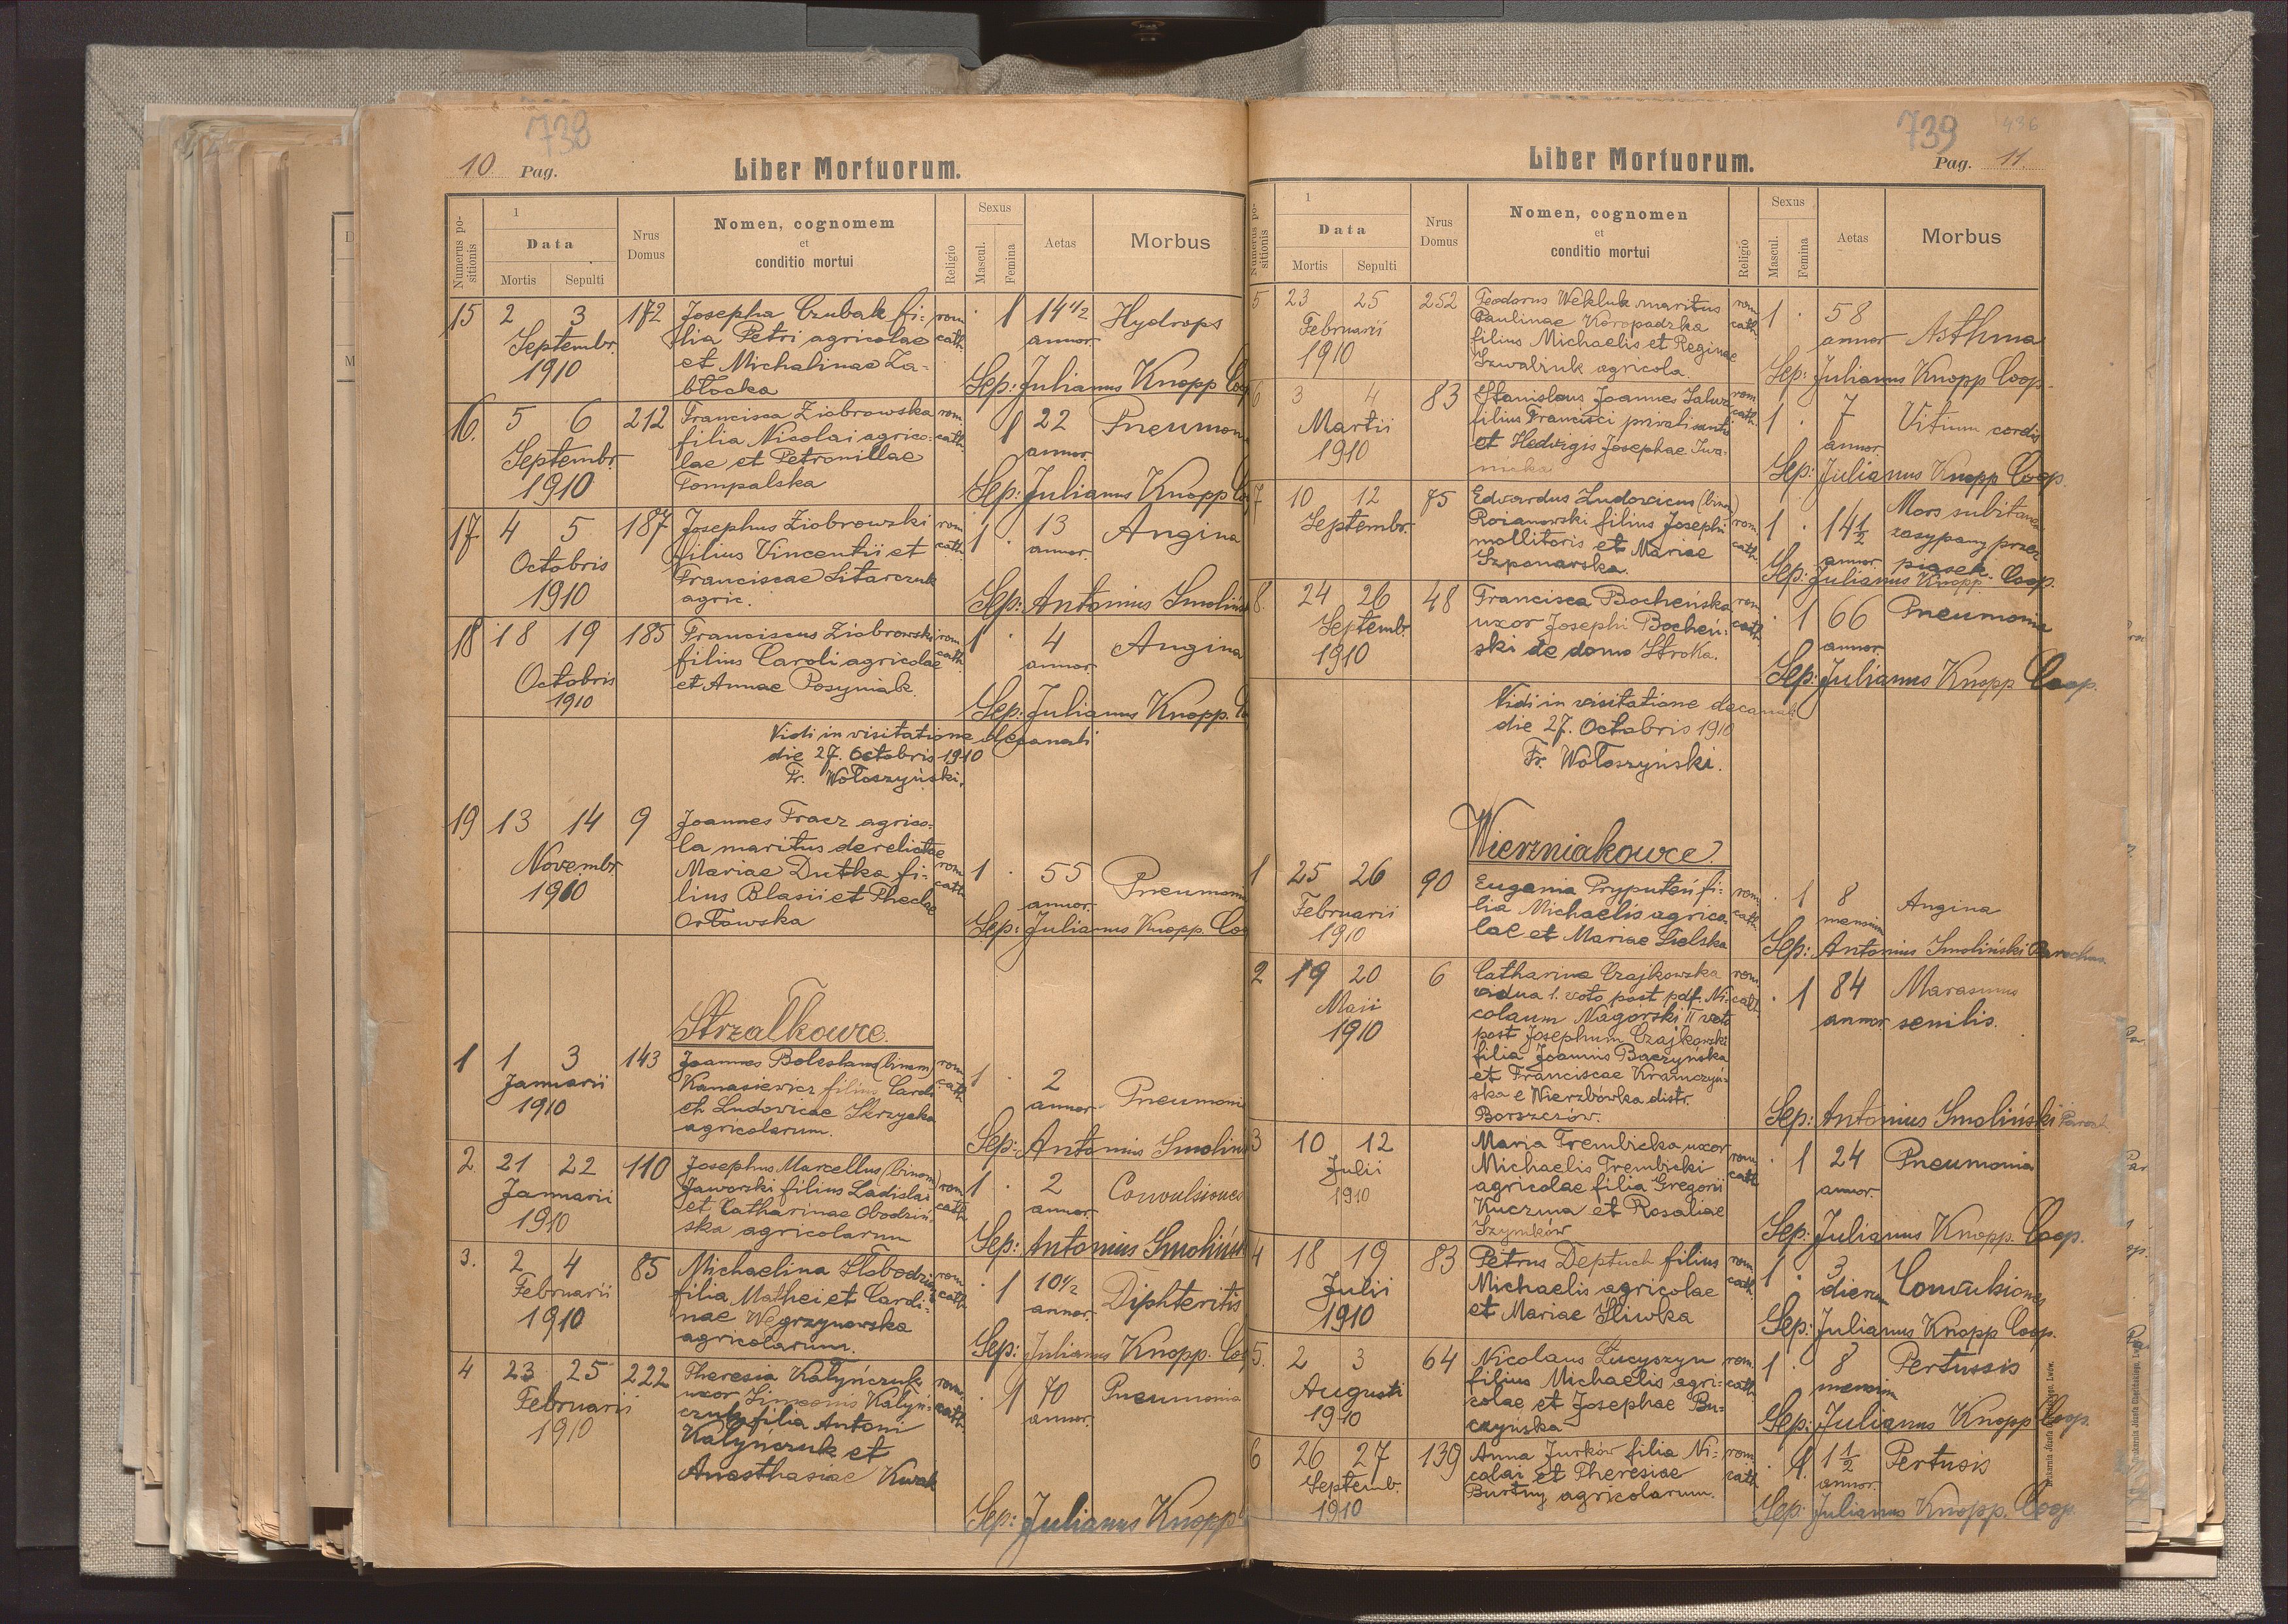 738
10 Pag.
Liber Mortuorum.
Numerus positionis
1
Data
Mortis Sepulti
Nrus Domus
Nomen, cognomem
et
conditio mortui
Religio
Sexus
Mascul. Femina
Aetas
Morbus
15 2 3 172 Josepha Czubak fi- rom. 1 14 1/2 Hydrops
Septembr. lia Petri agricolae cath. annor.
1910 et Michalinae Za-
błocka Sep: Julianus Knopp Coop
16. 5 6 212 Francisca Ziobrowska rom. 1 22 Pneumon
Septembr. filia Nicolai agrico- cath. annor.
1910 lae et Petronillae
Tompalska Sep: Julianus Knopp Co
17 4 5 187 Josephus Ziobrowski rom. 1 13 Angina
Octobris filius Vincentii et cath. annor.
1910 Franciscae Sitarczuk
agric. Sep: Antonius Smolińs
18 18 19 185 Franciscus Ziobrowski rom. 1 4 Angina
Octobris filius Caroli agricolae cath. annor.
1910 et Annae Posyniak.
Sep: Julianus Knopp. Co
Vidi in visitatione decanali
die 27. Octobris 1910
Fr. Wołoszyński.
19 13 14 9 Joannes Fracz agrico-
Novembr. la maritus derelictae
1910 Mariae Dutka fi- rom. cath. 1 55 Pneumon
lius Blasii et Theclae annor.
Orłowska Sep: Julianus Knopp. Coo
Strzalkowce.
1 1 3 143 Joannes Boleslaus (binom) rom. 1 2 Pneumoni
Januarii Kanasiewicz filius Caroli cath. annor.
1910 et Ludovicae Skrzycka
agricolarum. Sep: Antonius Smolins
2. 21 22 110 Josephus Marcellus (binom) rom. 1 2 Convulsiones
Januarii Jaworski filius Ladislai cath. annor.
1910 et Catharinae Obodziń-
ska agricolarum Sep: Antonius Smolińsk
3. 2 4 85 Michaelina Słobodzian rom. 1 10 1/2 Diphteritis
Februarii filia Mathei et Caroli- cath. annor.
1910 nae Węgrzynowska
agricolarum. Sep: Julianus Knopp. Coo
4 23 25 222 Theresia Kałyńczuk rom. 1 70 Pneumonia
Februarii uxor Simeonis Kałyń- cath. annor.
1910 czuk filia Antoni
Kałyńczuk et
Anasthasiae Kwak
Sep: Julianus Knopp
739 436
Liber Mortuorum.
Pag. 11.
Numerus positionis
1
Data
Mortis Sepulti
Nrus Domus
Nomen, cognomen
et
conditio mortui
Religio
Sexus
Mascul. Femina
Aetas
Morbus
5 23 25 252 Teodorus Wekluk maritus rom. 1 58 Asthma
Februarii Paulinae Koropadzka cath. annor
1910 filius Michaelis et Reginae
Szwalruk agricola. Sep: Julianus Knopp Coop.
6 3 4 83 Stanislaus Joannes rom. 1 7 Vitium cordis
Martii filius Francisci privatisantis cath. annor.
1910 et Hedvigis Josephae Iwa-
nicka Sep: Julianus Knopp Coop.
7 10 12 75 Edvardus Ludovicus (binom) rom. 1 14 1/2 Mors subitanea
Septembr. Roianowski filius Josephi cath. annor. zasypany przez
mollitoris et Mariae piasek.
Szponarska. Sep: Julianus Knopp. Coop.
8. 24 26 48 Francisca Bocheńska rom. 1 66 Pneumonia
Septemb. uxor Josephi Bocheń- cath. annor.
1910 ski de domo Stroka.
Sep: Julianus Knopp Coop.
Vidi in visitatione decanali
die 27. Octobris 1910
Fr. Wołoszyński.
Wierzniakowce.
1 25 26 90 Eugenia Pryputeń fi- rom. 1 8 Angina
Februarii lia Michaelis agrico- cath. mensium
1910 lae et Mariae Fielska
Sep: Antonius Smoliński Parochus
2 19 20 6 Catharina Czajkowska rom. 1 84 Marasmus
Maii vidua 1. voto post pdf. Ni- cath. annor senilis.
1910 colaum Nagórski II voto
post Josephum Czajkowski
filia Joannis Baczyńska
et Franciscae Kramczyń-
ska e Wierzbówka distr.
Borszczów. Sep: Antonius Smoliński Paroch
3 10 12 Maria Trembicka uxor rom. 1 24 Pneumonia
Julii Michaelis Trembicki cath. annor.
1910 agricolae filia Gregorii
Kuczma et Rosaliae
Szymków Sep: Julianus Knopp. Coop.
4 18 19 83 Petrus Deptuch filius rom. 1 3 Convulsiones
Julii Michaelis agricolae cath. dierum
1910 et Mariae Sliwka
Sep: Julianus Knopp Coop.
5. 2 3 64 Nicolaus Łucyszyn rom. 1 8 Pertussis
Augusti filius Michaelis agri- cath. mensium
1910 colae et Josephae Bu-
czyńska Sep: Julianus Knopp Coop.
6 26 27 139 Anna Jurków filia Ni- rom. 1 1 1/2 Pertusis
Septemb. colai et Theresiae cath. annor.
1910 Burtny agricolarum.
Sep: Julianus Knopp. Coop.